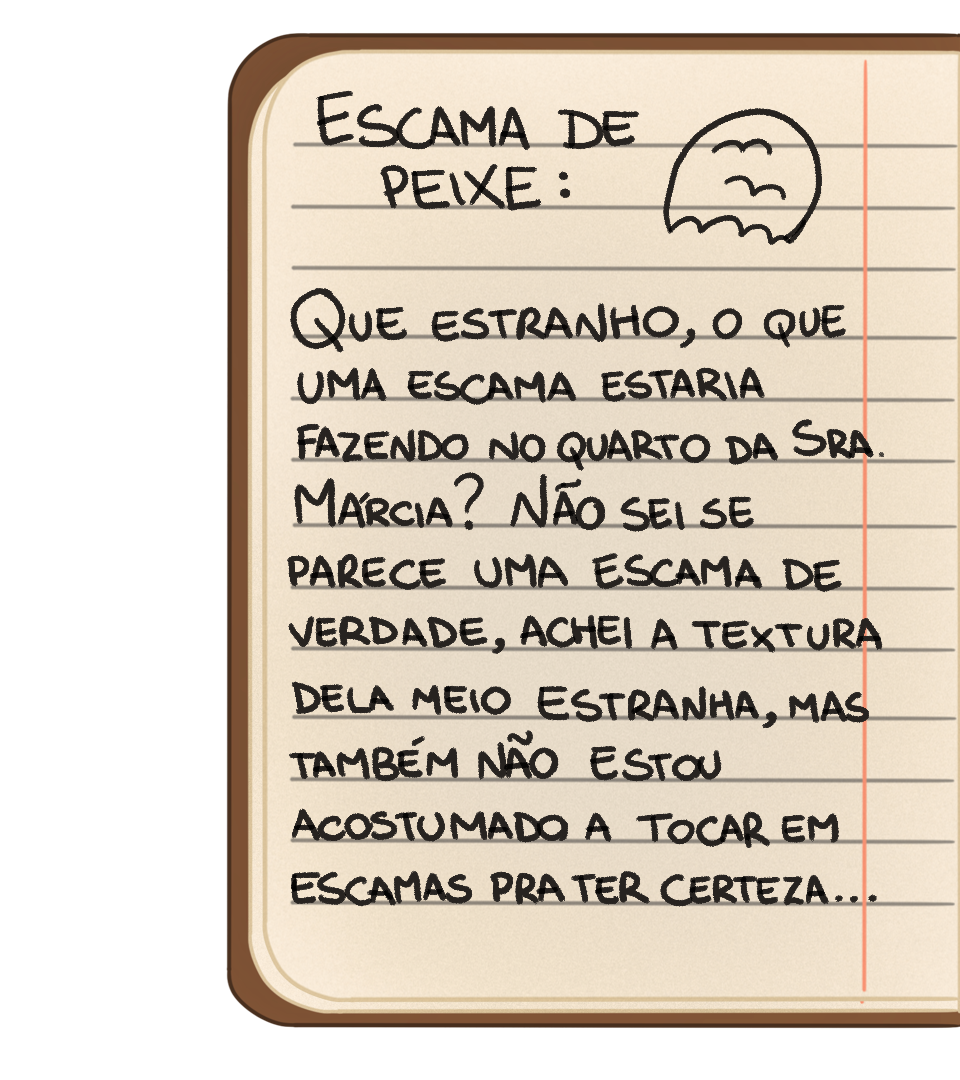 ESCAMA DE
PEIXE:
QUE ESTRANHO, O QUE
UMA ESCAMA ESTARIA
FAZENDO NO QUARTO DA SRA.
MÁRCIA? NÃO SEI SE
PARECE UMA ESCAMA DE
VERDADE, ACHEI A TEXTURA
DELA MEIO ESTRANHA, MAS
TAMBÉM NÃO ESTOU
ACOSTUMADO A TOCAR EM
ESCAMAS PRA TER CERTEZA...